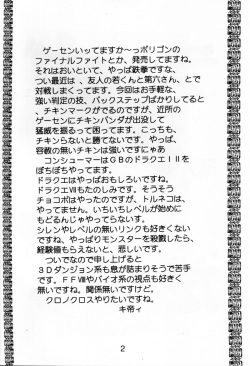 ゲーセンいってますか～っポリゴンの
ファイナルファイトとか、発売してますね。
それはおいといて、やっぱ鉄拳ですな、
つい最近は、友人の若くんと第六さん、とで
対戦しまくってます。今回はお手軽な、
強い判定の技、バックステップばかりしてると
、チキンマークがでるのですが、近所の
ゲーセンにチキンパンダが出没して
猛威を振るって困ってます。こっちも、
チキンらないと勝てないです。やっぱ、
容赦の無いチキンは強いですにゃあ
コンシューマーはGBのドラクエIIIを
ぼちぼちやってます。
ドラクエはやっぱおもしろいですね。
ドラクエVIIもたのしみです。そうそう
チョコボはやったのですが、トルネコは、
やってません。いちいちレベルが始めに
もどるんじゃやってらないす。
シレンやレベルの無いリンクも好きくない
ですね、やっぱりモンスターを殺戮したら、
経験値もらえないと、悲しいです。
ついでなので申し上げると
3Dダンジョン系も息が詰まりそうで苦手
です。FFVIIIやバイオ系の視点も好きく
無いですね。関係無いですけど。
クロノクロスやりたいですね。
キ帝ィ
2